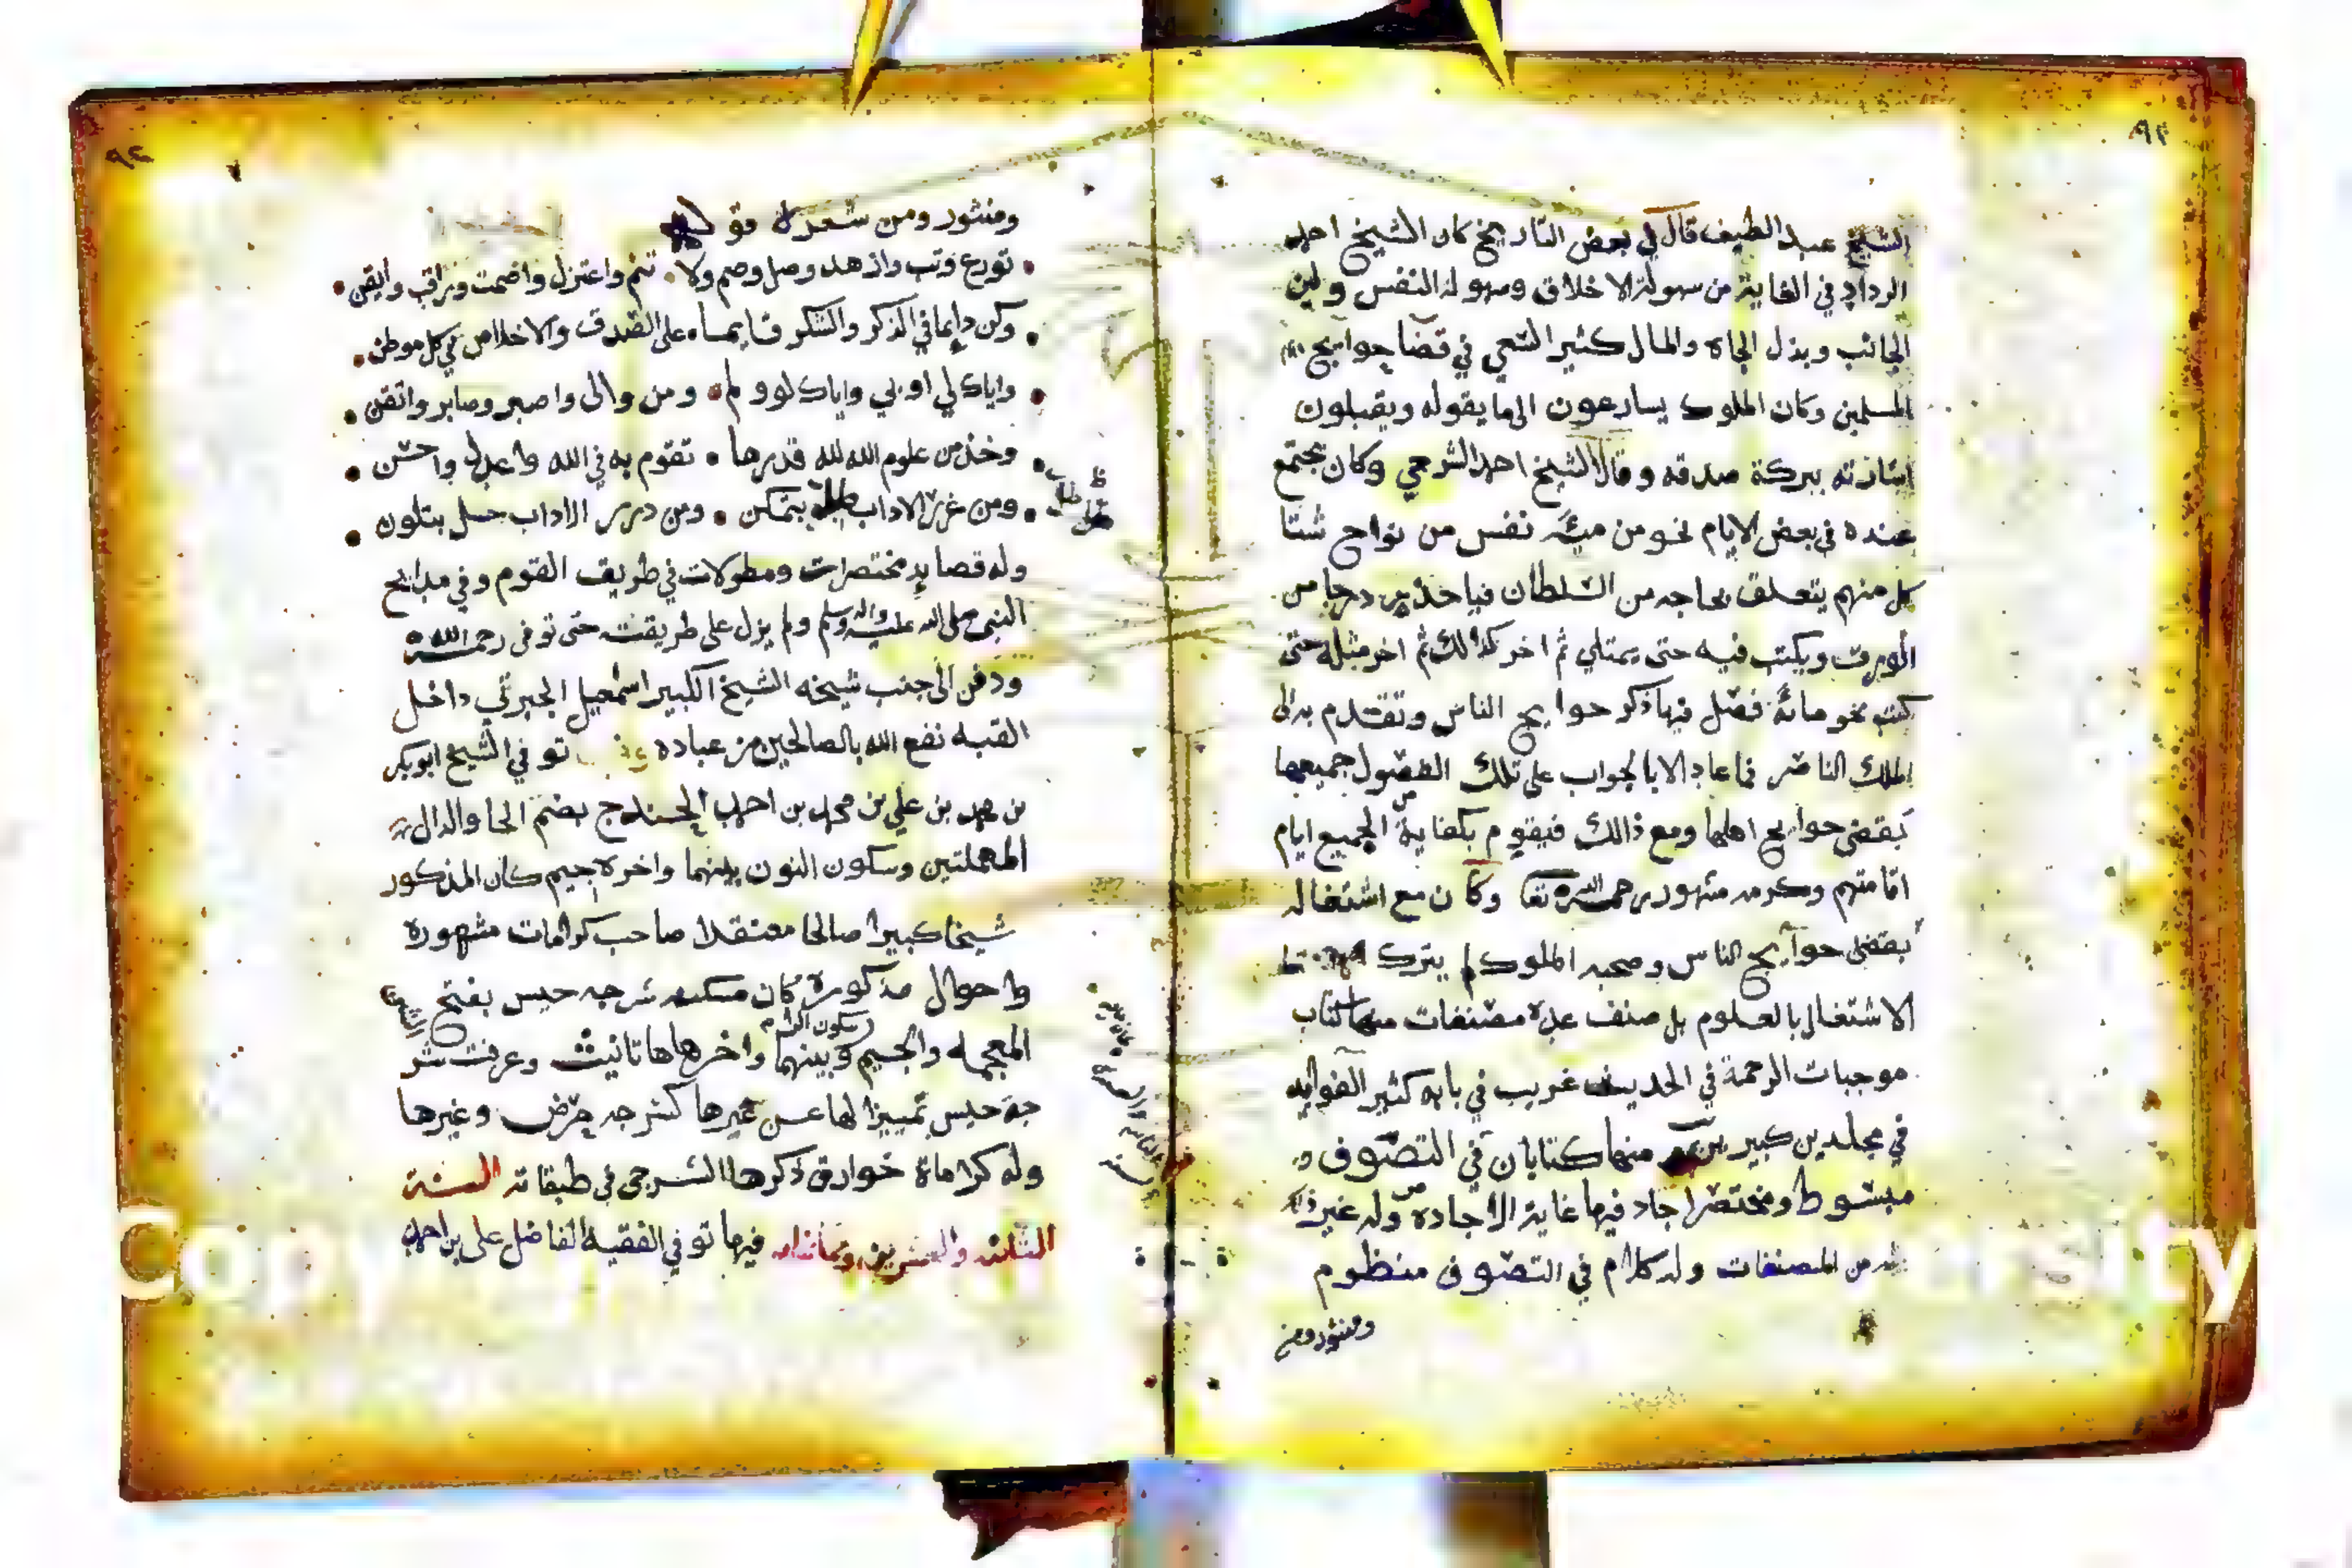 الشيخ عبد الطيف قال في بعض التاريخ كان الشيخ احمد
الرداد في الغاية من سهولة الاخلاق وسهولة النفس ولين
الجانب وبذل الجاه والمال كثير السعي في قضا حوايج
المسلمين وكان الملوك يسارعون الى ما يقوله ويقبلون
اشارته ببركة صدقه وقال الشيخ احمد الشرجي وكان يجتمع
عنده في بعض الايام نحو من مئة نفس من نواح شتا
كل منهم يتعلق بحاجه من السلطان فياخذ درجا من
الورق ويكتب فيه حتى يمتلي ثم اخر كذالك ثم اخر مثله حتى
كتب نحو مائة فصل فيها ذكر حوايج الناس وتقدم به الى
الملك الناصر فما عاد الا بالجواب على تلك الفصول جميعها
بقضى حوايج اهلها ومع ذالك فيقوم بكفاية الجميع ايام
اقامتهم وكرمه مشهور رحمه الله تعا وكان مع اشتغاله
بقضى حوآيج الناس وصحبه الملوك لم يترك قط
الاشتغال بالعلوم بل صنف عدة مصنفات منها كتاب
موجبات الرحمة في الحديث غريب في بابه كثير الفوايد
في مجلدين كبيرين منها كتابان في التصوف
مبسوط ومختصر اجاد فيها غاية الاجاده وله غير
من المصنفات وله كلام في التصوف منظوم
ومنثور ومن
٩٢
ومنثور ومن شعره قوله
تورع وتب وازهد وصل وصم ولا تنم واعتزل واصمت وراقب وايقن
وكن دايما في الذكر والشكر قايما على الصدق والاخلاص في كل موطن
واياك لي او بي واياك لو ولم ومن والى واصبر وصابر واتقن
وخذ من علوم الله لله قدرها تقوم به في الله واعدل واحسن
ومن غرر الاداب بتمكن ومن درر الاداب حل بتلون
وله قصايد مختصرات ومطولات في طريق القوم وفي مدايح
النبي صلى الله عليه واله وسلم ولم يزل على طريقته حتى توفى رحمه الله
ودفن الى جنب شيخه الشيخ الكبير اسمعيل الجبرتي داخل
القبه نفع الله بالصالحين من عباده توفي الشيخ ابوبكر
بن محمد بن علي بن محمد بن احمد الحندج بضم الحا والدال
المهملتين وسكون النون بينهما واخره جيم كان المذكور
شيخا كبيرا صالحا معتقدا صاحب كرامات مشهورة
واحوال مذكورة كان مسكنه شرجه حيس بفتح الشين
المعجمه والجيم وبينهما واخرها ها تانيث وعرفت شر
جة حيس تمييزا لها عن غيرها كشرجه حرض وغيرها
وله كراماة خوارق ذكرها الشرجي في طبقاته السنة
الثالثه والعشرين وثمانمائه فيها توفي الفقيه الفاضل على بن احمد